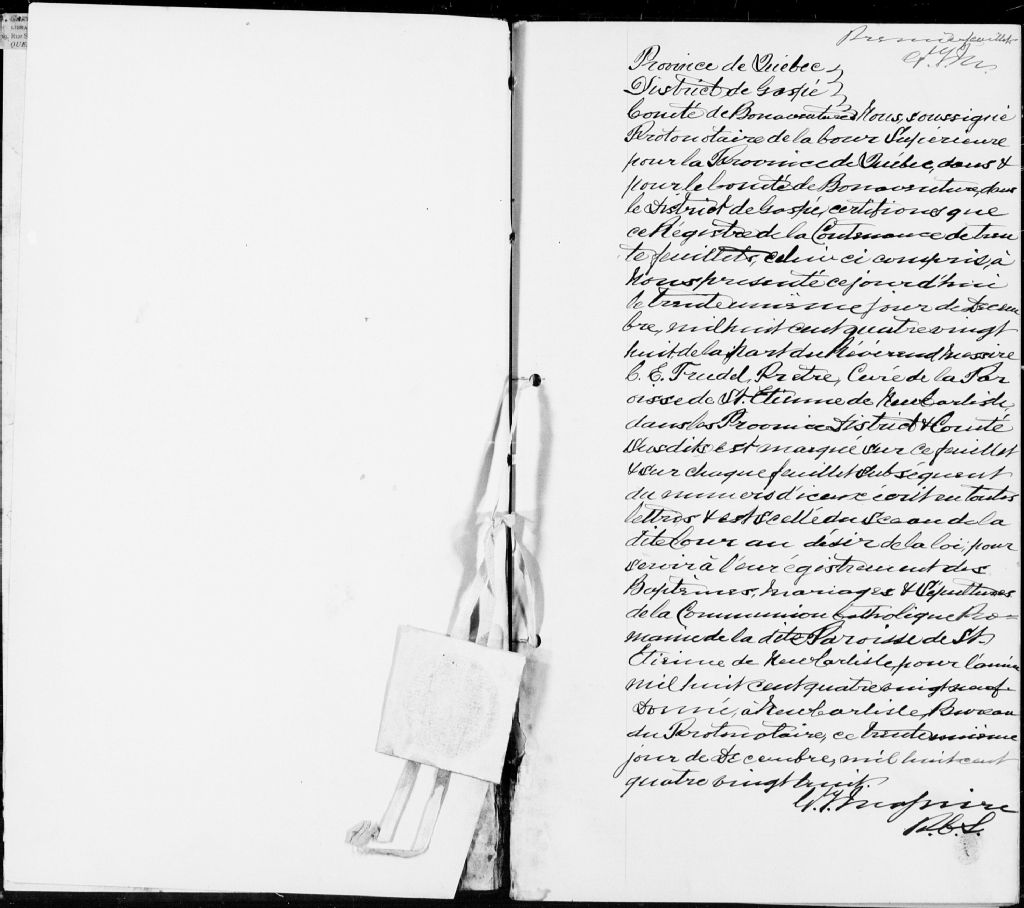 Premier feuillet
Province de Québec
District de Gaspé
Comté de Bonaventure Nous, soussigné
Protonotaire de la Cour Supérieure
pour la Province de Québec, dans &
pour le Comté de Bonaventure, dans
le District de Gaspé, certifions que
ce Régistre de la Contenance de tren
te feuillets, celui ci compris, à
Nous présenté ce jourd'hui
le trente unième jour de Décem
bre, mil huit cent quatre vingt
huit de la part du Révérend Messire
C. E. Trudel, Prêtre, Curé de la Par
oisse de St. Etienne de New Carlisle,
dans les Province District & Comté
susdits est marqué sur ce feuillet
& sur chaque feuillet subséquent
du numero d'iceux écrit en toutes
lettres & est scellé du sceau de la
dite Cour au désir de la loi, pour
servir à l'enrégistrement des
Baptêmes, Mariages & Sépultures
de la Communion Catholique Ro=
maine de la dite Paroisse de St.
Etienne de New Carlisle, pour l'année
mil huit cent quatre vingt neuf.
Donné, à New Carlisle, Bureau
du Protonotaire, ce trente unième
jour de Décembre, mil huit cent
quatre vingt huit.
P.C.S.